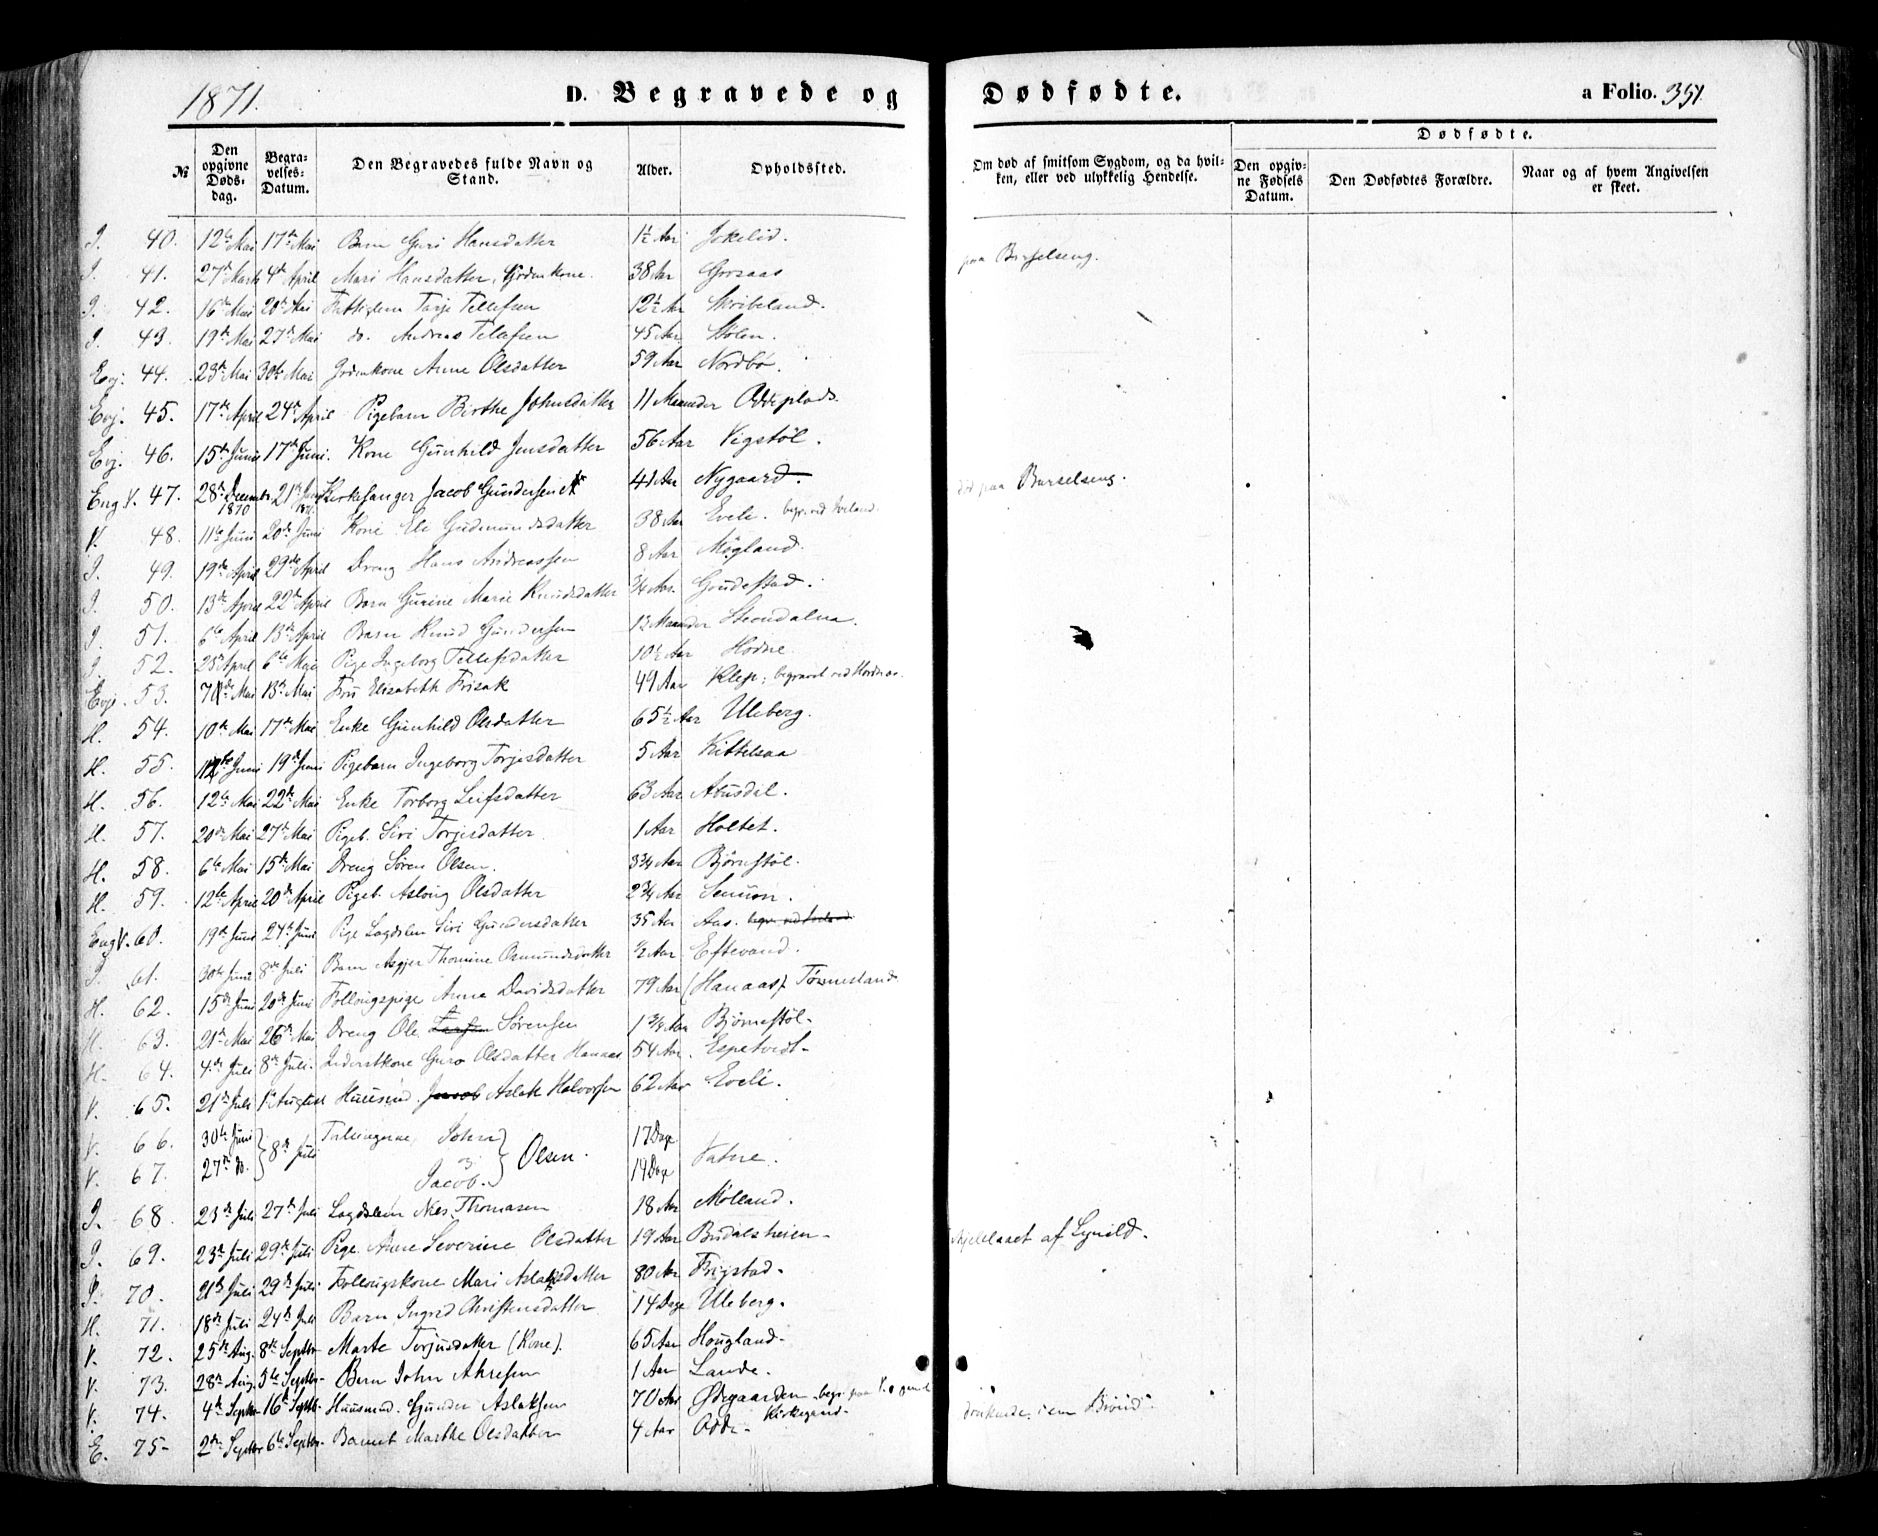 1871.
D. Begravede og Dødfødte.
a Folio. 351
№
Den opgivne Døds-dag.
Begra-velses-Datum.
Den Begravedes fulde Navn og Stand.
Alder.
Opholdssted.
Om død af smitsom Sygdom, og da hvil-ken, eller ved ulykkelig Hendelse.
Dødfødte.
Den opgiv-ne Fødsels Datum.
Den Dødfødtes Forældre.
Naar og af hvem Angivelsen er skeet.
40. 12te Mai 17de Mai Barn Guri Hansdatter 1½ Aar Jokelid.
41. 27de Marts 4de April Mari Hansdatter, Gaardmkone. 38 Aar Gorsaas paa Barselseng.
42. 16de Mai 20de Mai Fattiglem Tarje Tellefsen 12½ Aar Skribeland.
43. 19de Mai 27de Mai do. Andreas Tellefsen 45 Aar Stølen.
Evj. 44. 23de Mai 30te Mai Gdmkone Anne Olsdatter 59 Aar Nordbø.
Evj. 45. 17de April 24de April Pigebarn Birthe Johnsdatter 11 Maaneder Oddeplads.
Evj. 46. 15de Juni 17de Juni. Kone Gunhild Jensdatter 56 Aar Vigstøl.
Eng V. 47. 28de Decembr 1870 21de Juni 1871. Kirkesanger Jacob Gundersen 41 Aar Nygaard.
V. 48. 11te Juni 20de Juni Kone Eli Gudmundsdatter 38 Aar Eveli. begr. ved Iveland. død paa Barselseng.
49. 19de April 29de April Dreng Hans Andreassen 8 Aar Møgland.
50. 13de April 22de April Barn Gurine Marie Knudsdatter ¾ Aar. Goudestad.
51. 6te April 13de April Barn Knud Gundersen 13 Maaneder
52. 25de April 6te Maje Pige Ingeborg Tellefsdatter 10½ Aar Hodne
Evje. 53. 7de Mai 13de Mai Fru Elisabeth Frisak 49 Aar Klep; begravet ved Hordnes.
H. 54. 10de Mai 17de Mai Enke Gunhild Olsdatter 65½ Aar Uleberg.
H. 55. 12te Juni 19de Juni Pigebarn Ingeborg Torjisdatter 5 Aar Kittelsaa
H. 56. 12te Mai 22de Mai Enke Torborg Leifsdatter 63 Aar Abusdal.
H. 57. 20de Mai 27de Mai Pigeb. Siri Torjisdatter. 1 Aar Holtet.
H. 58. 6te Mai 15de Mai Dreng Søren Olsen. 3¾ Aar Bjørnstøl.
H. 59. 12te April 20de April Pigeb. Aslaug Olsdatter 2¾ Aar Senum.
Eng V. 60. 19de Juni 27de Juni Pige Lægdslem Siri Gundersdatter 35 Aar Aas.
61. 30te Juni 8de Juli Barn Asgjer Thomine Osmundsdatter ½ Aar Eftevand.
H. 62. 15de Juni 20de Juni Follougspige Anna Davidsdatter 79 Aar (Hanaas) Tønnesland.
H. 63. 21de Mai 26de Mai Dreng Ole Larsen Sørensen 1¾ Aar Bjørnestøl.
H. 64. 4de Juli 8de Juli. Inderstkone Guro Olsdatter Hanaas 54 Aar. Espetvedt
V. 65. 21de Juli 1te August Huusmd. Jacob Aslak Halvorsen 62 Aar Eveli.
V. 66. 30te Juni 8de Juli Tvillingerne, John Olsen. 17 Dage Vatne.
V. 67. 27de do. og Jacob. 14 Dage
68. 23de Juli 27de Juli Lægdslem Niels Thomasen 18 Aar Mølland.
69. 23de Juli 29de Juli Pige Anne Severine Olsdatter 19 Aar Budalsheien ihjelslaaet af Lynild.
70. 21de Juli 29de Juli Follougskone Mari Aslaksdatter 80 Aar Frigstad.
H. 71. 18de Juli 24de Juli Barn Ingrid Christensdatter 14 Dage Uleberg.
V. 72. 25de Aug. 8de Septbr Marte Torjusdatter (Kone). 65 Aar Hougland.
V. 73. 28de Aug. 5te Septbr. Barn John Akresen 1 Aar Lande.
V. 74. 4de Septbr 16de Septbr. Huusmnd. Gunder Aslaksen 70 Aar Ødegaarden begr. paa Kirkegaard. druknede i en Brønd.
E. 75 2den Septbr 6te Septbr. Barnet Marthe Olsdatter 4 Aar Odde